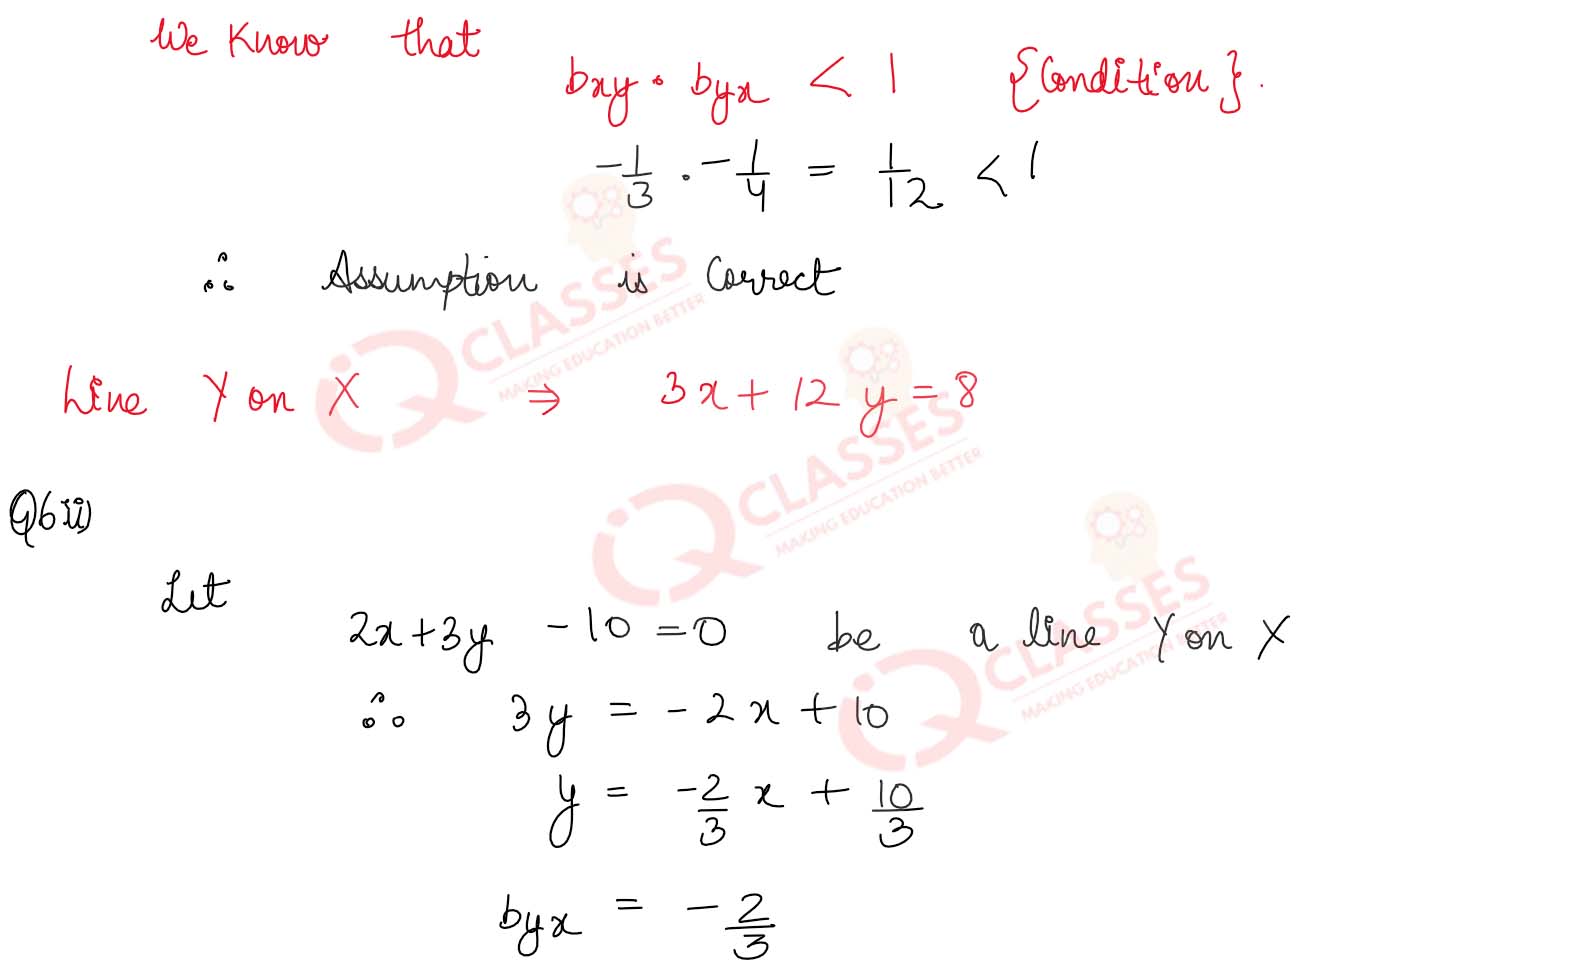 We Know that
bxy . byx < 1 {Condition}.
-1/3 . -1/4 = 1/12 < 1
∴ Assumption is Correct
Line Y on X ⇒ 3x + 12y = 8
Q6ii)
Let
2x+3y -10 =0 be a line Y on X
∴ 3y = -2x + 10
y = -2/3 x + 10/3
byx = -2/3
iQ CLASSES
MAKING EDUCATION BETTER
iQ CLASSES
MAKING EDUCATION BETTER
iQ CLASSES
MAKING EDUCATION BETTER